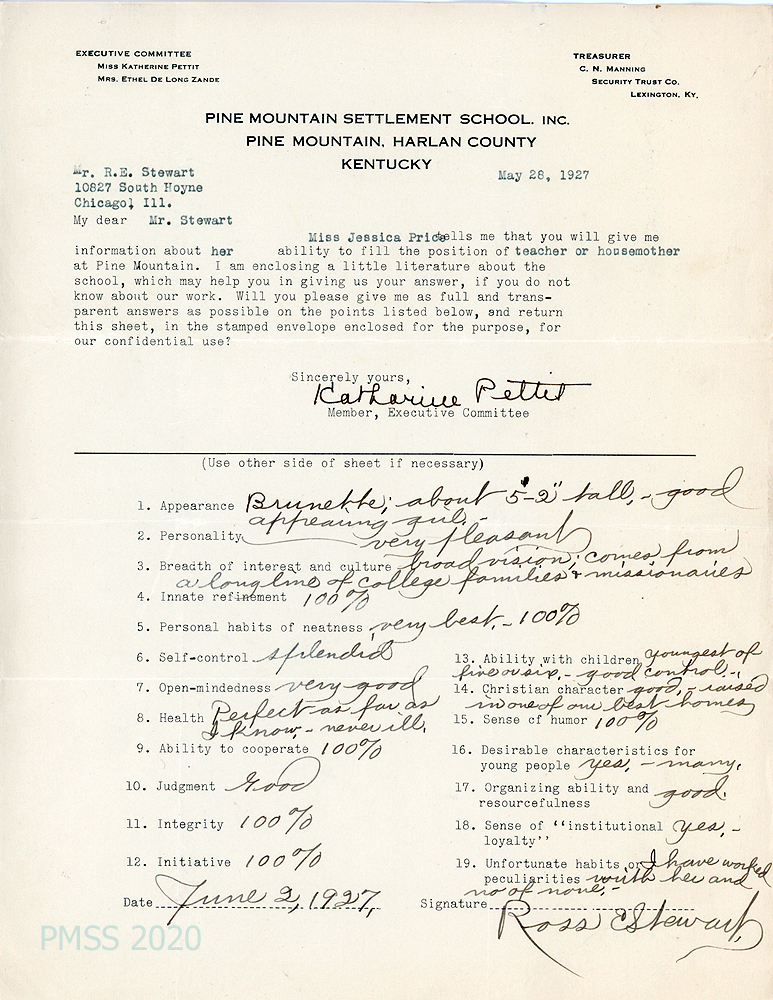 EXECUTIVE COMMITTEE
MISS KATHERINE PETTIT
MRS. ETHEL DE LONG ZANDE
TREASURER
C. N. MANNING
SECURITY TRUST CO.
LEXINGTON, KY.
PINE MOUNTAIN SETTLEMENT SCHOOL. INC.
PINE MOUNTAIN, HARLAN COUNTY
KENTUCKY
May 28, 1927
Mr. R.E. Stewart
10827 South Hoyne
Chicago, Ill.
My dear Mr. Stewart
Miss Jessica Price tells me that you will give me
information about her ability to fill the position of teacher or housemother
at Pine Mountain. I am enclosing a little literature about the
school, which may help you in giving us your answer, if you do not
know about our work. Will you please give me as full and trans-
parent answers as possible on the points listed below, and return
this sheet, in the stamped envelope enclosed for the purpose, for
our confidential use?
Sincerely yours,
Katharine Pettit
Member, Executive Committee
(Use other side of sheet if necessary)
1. Appearance Brunette; about 5-2" tall, - good
appearing girl. -
2. Personality very pleasant
3. Breadth of interest and culture broad vision; comes from
a long line of college families & missionaries
4. Innate refinement 100%
5. Personal habits of neatness very best, - 100%
6. Self-control splendid
7. Open-mindedness very good
8. Health Perfect as far as
I know, - never ill.
9. Ability to cooperate 100%
10. Judgment Good
11. Integrity 100%
12. Initiative 100%
13. Ability with children youngest of
five or six, - good control. -
14. Christian character good, - raised
in one of our best homes
15. Sense of humor 100%
16. Desirable characteristics for
young people yes, - many.
17. Organizing ability and good.
resourcefulness
18. Sense of "institutional yes, -
loyalty"
19. Unfortunate habits or I have worked
peculiarities with her and
no of none, -
Date June 2, 1927,
Signature Ross E Stewart,
PMSS 2020